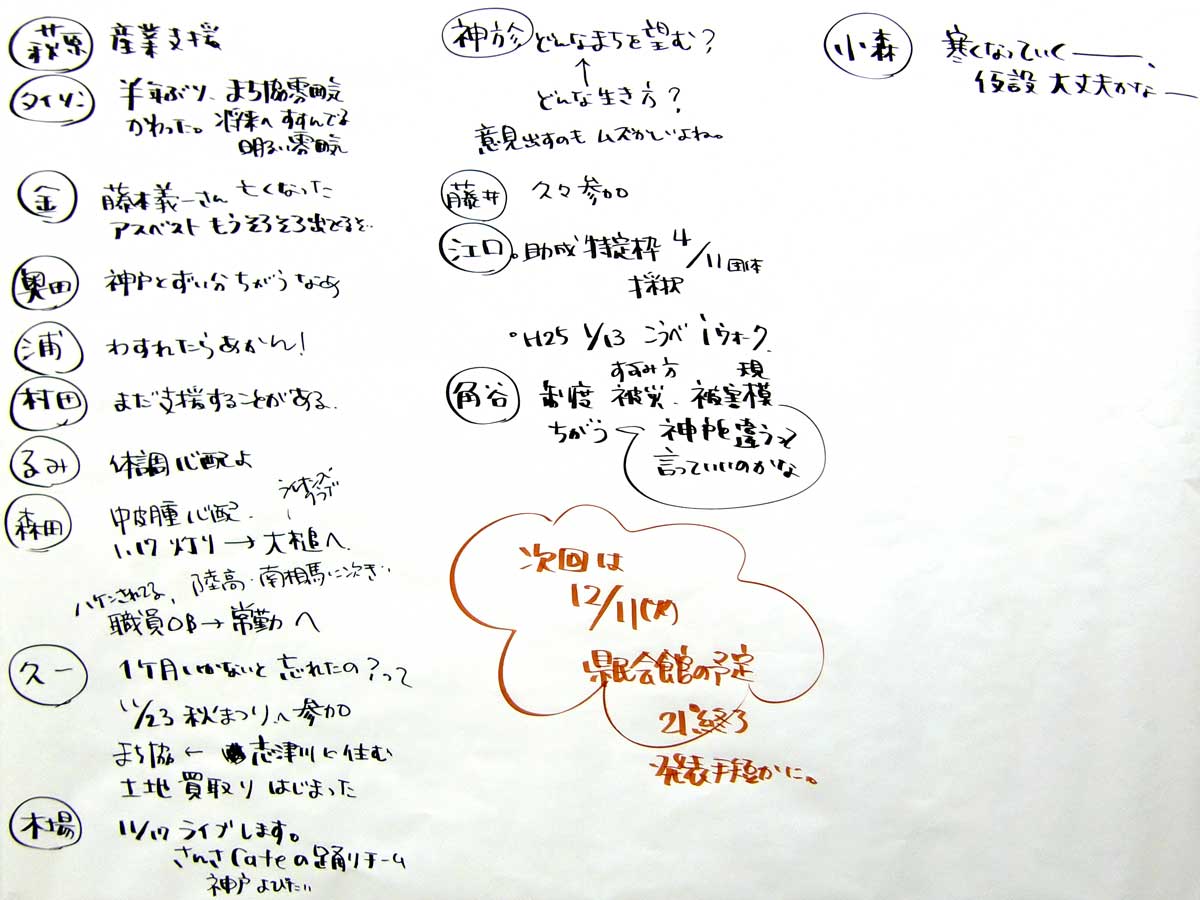 萩原 産業支援
タイソン 半年ぶり、まち協雰囲気
かわった。将来へすすんでる
明るい雰囲気
金 藤本義一さん 亡くなった
アスベスト もうそろそろ出てるぞ…
奥田 神戸とずい分ちがうなあ
浦 わすれたらあかん!
村田 まだ支援することがある.
るみ 体調心配よ
森田 中皮腫心配.
ライオンズ
クラブ
1.17 灯り → 大槌へ.
ハケンされてる, 陸高・南相馬に次ぎ…
職員OB → 常勤へ
久一 1ケ月いかないと忘れたの?って
11/23 秋まつりへ参加
まち協 ← 志津川に住む
土地買取りはじまった
木場 11/17 ライブします。
さんさCafeの踊りチーム
神戸よびたい
神於 どんなまちを望む?
↑
どんな生き方?
意見出すのもムズかしいよね。
藤井 久々参加
江口 。助成特定枠 4/11団体
採択
。H25 1/13 こうべ iウォーク.
角谷 制度 被災. 被害模
すすみ方 現
ちがう ← 神戸と違うって
言っていいのかな
次回は
12/11(火)
県民会館の予定
21:終了
発表手短かに。
小森 寒くなっていくー、
仮設 大丈夫かなー